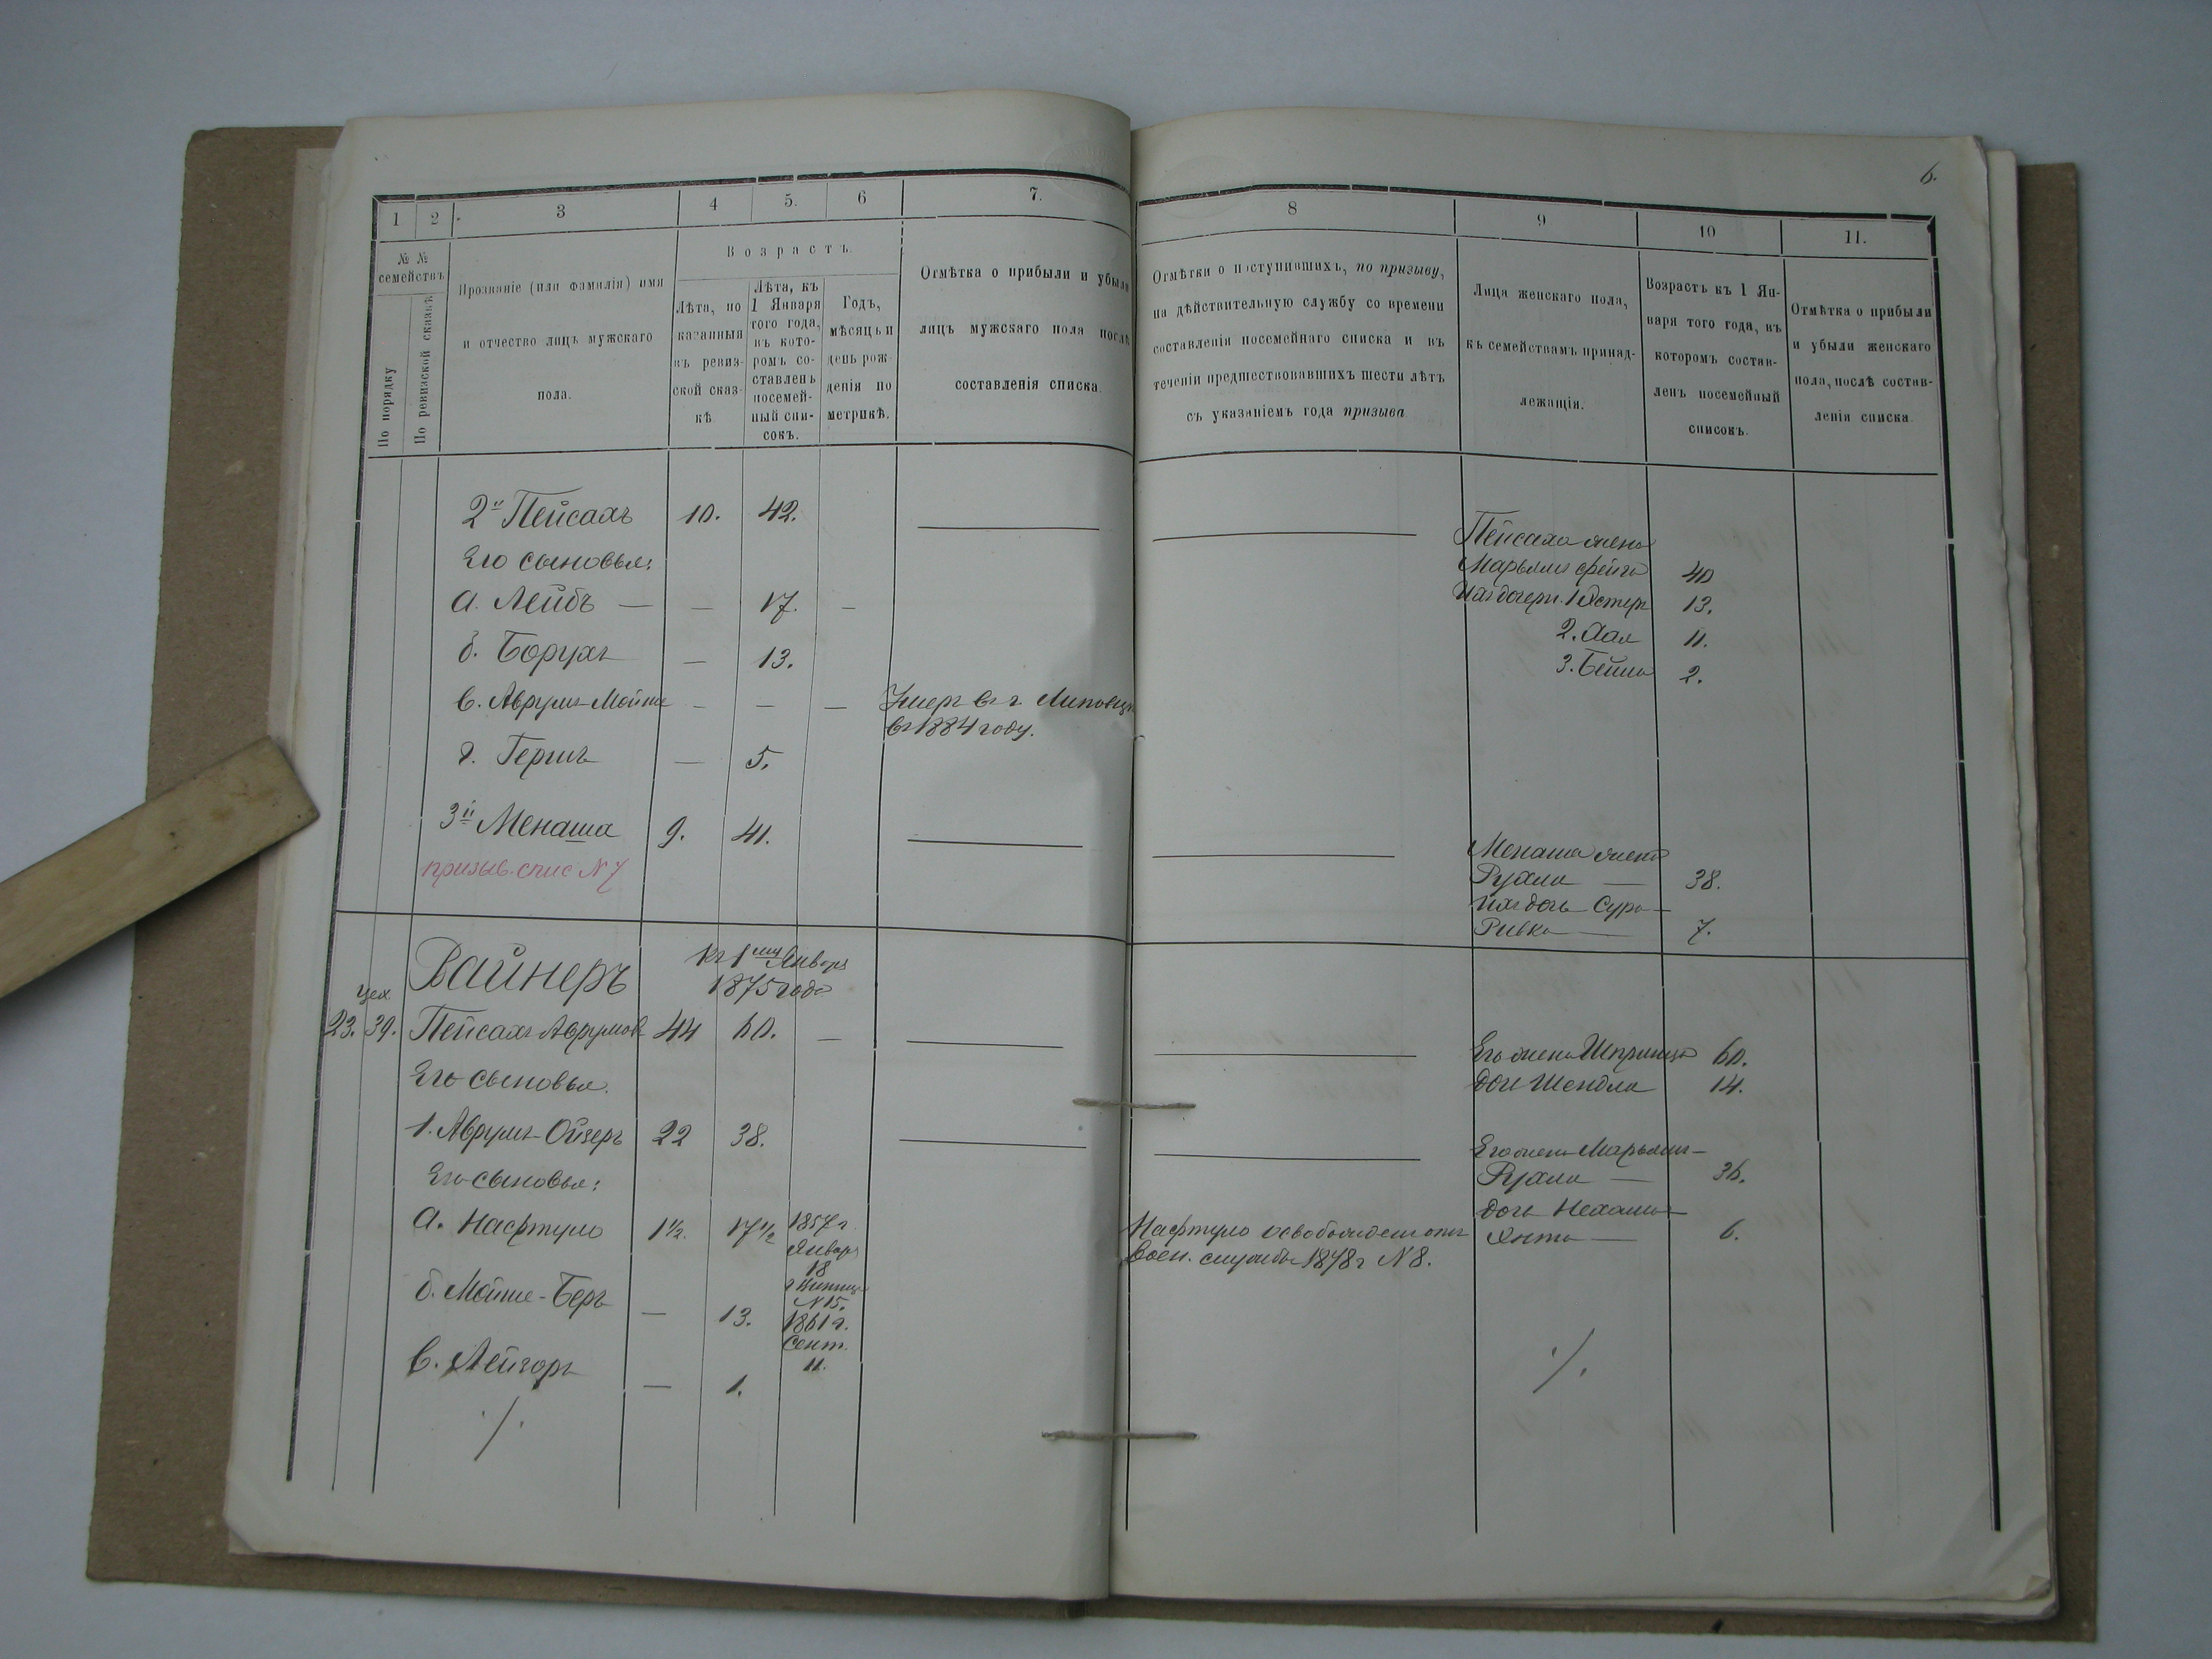 6.
1 2 3 4 5. 6 7.
№ № семействъ
По порядку
По ревизской сказкѣ
Прозваніе (или фамилія) имя
и отчество лицъ мужскаго
пола.
Возрастъ
Лѣта, по
казанныя
въ ревиз-
ской сказ-
кѣ
Лѣта, къ
1 Января
того года,
въ кото-
ромъ со-
ставленъ
посемей-
ный спи-
сокъ.
Годъ,
мѣсяцъ и
день рож
денія по
метрикѣ.
Отмѣтка о прибыли и убыли
лицъ мужскаго пола послѣ
составленія списка.
2й Пейсахъ 10. 42.
Его сыновья:
а. Лейбъ — — 17. —
б. Борухъ — 13.
в. Аврумъ-Мойше — — — Умеръ въ г. Липовцѣ
въ 1884 году.
г. Гершъ — 5.
3й Менаша 9. 41.
призыв. спис N 7
Вайнеръ къ 1му Января
1875 года
цех.
23. 39. Пейсахъ Аврумов 44 60. —
Его сыновья.
1. Аврумъ-Ойзеръ 22 38.
Его сыновья:
а. Нафтуло 1½. 17½ 1857 г.
Января
18
N 15.
б. Мойше-Беръ — 13. 1861 г.
Сент.
11.
в. Лейзоръ — 1.
./.
8 9 10 11.
Отмѣтки о поступившихъ, по призыву,
на дѣйствительную службу со времени
составленія посемейнаго списка и въ
теченіи предшествовавшихъ шести лѣтъ
съ указаніемъ года призыва
Лица женскаго пола,
къ семействамъ принад-
лежащія.
Возрастъ къ 1 Ян-
варя того года, въ
которомъ состав-
ленъ посемейный
списокъ.
Отмѣтка о прибыли
и убыли женскаго
пола, послѣ состав-
ленія списка
Пейсаха жена
Марьямъ Фейга 40
Ихъ дочери. 1 Эстеръ 13.
2. 11.
3. Бейла 2.
Менаша жена
Рухля — 38.
Ихъ дочь Сура-
Ривка — 7.
Его жена Шпринца 60.
дочь Шендля 14.
Его жена Марьямъ-
Рухля — 36.
дочь Нехама-
Ента — 6.
Нафтуло освобожденъ отъ
воен. службы 1878 г N 8.
./.